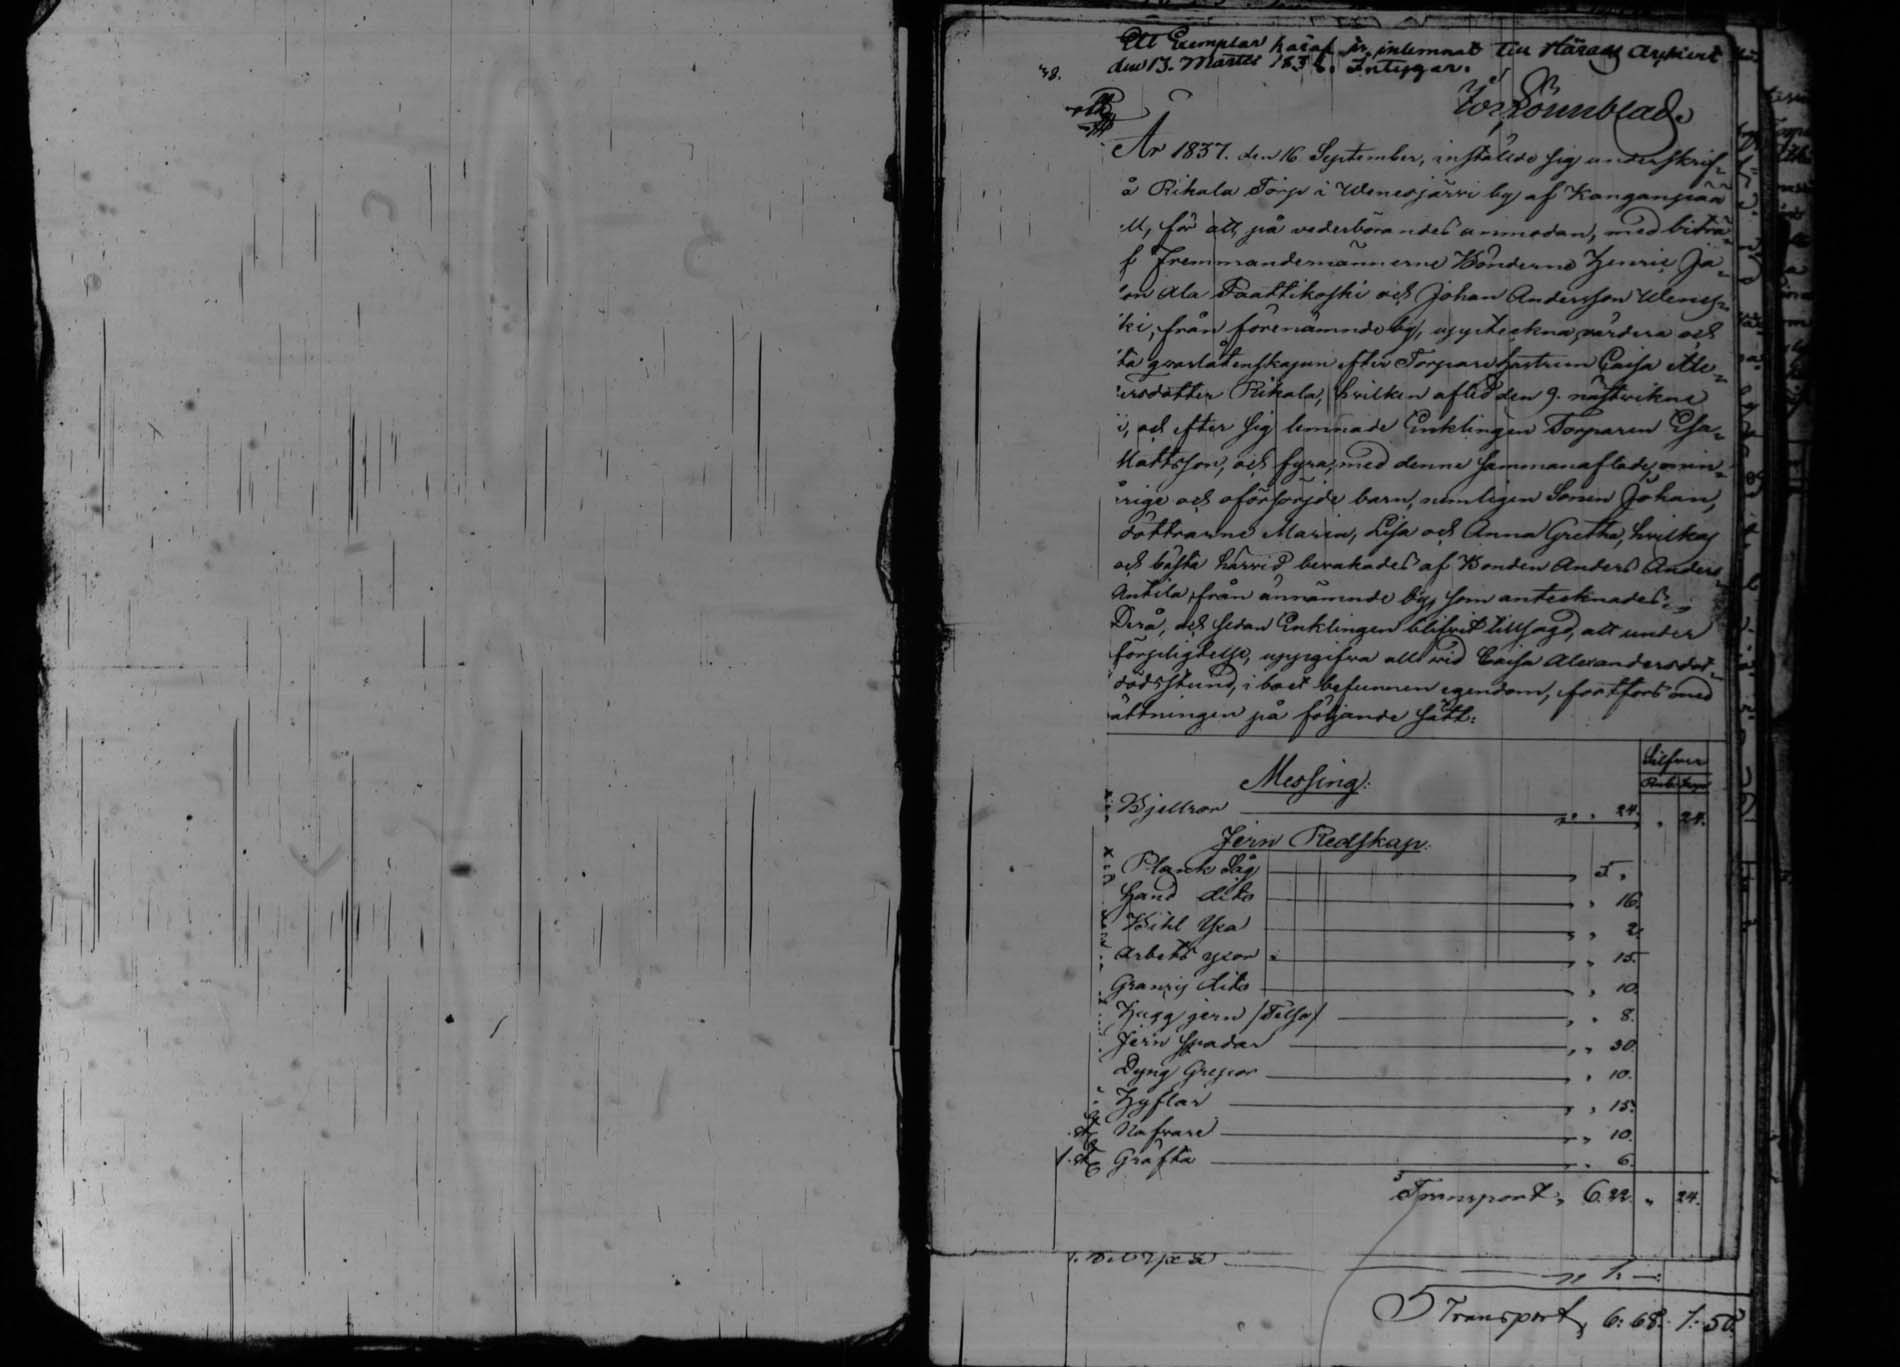 Ett Exemplar häraf är inlemnat till Härads Arkivet
den 13. Martii 1838. Intygar.
38.
År 1837. den 16 September, instälde sig underskrif-
å Rikala Torp i Wenesjärvi by af Kanganpää
för att, på vederbörandes anmodan, med biträ-
f Fremmandemännerne Bönderne Henric Ja-
on Ala Paattikoski och Johan Andersson Wenes-
ki, från förenämnde by, uppteckna, värdera och
ta qvarlåtenskapen efter Torpare hustrun Caisa Ale-
ersdotter Rikala, hvilken afled den 9. nästvikne
i, och efter sig lemnade Enklingen Torparen Esa-
Mattsson, och fyra, med denne sammanaflade, omin-
rige och oförsörjde barn, nemligen Sonen Johan,
döttrarne Maria, Lisa och Anna Gretha, hvilkas
och bästa härvid bevakades af Bonden Anders Anders-
Antila, från ännämnde by, som antecknades.
Derå, och sedan Enklingen blifvit tillsagd, att under
förpligtelse, uppgifva allt vid Caisa Alexandersdot-
dödsstund, i boet befunnen egendom, fortfors med
ättningen på följande sätt:
Silfver
Rub. Kop.
Messing:
Bjellror 24. 24.
Jern Redskap.
Planck Såg 5
Hand dito 16.
Bihl Yxa 2.
Arbets yxor 15.
Granris dito 10.
Hugg jern /Telso/ 8.
Jern Spadar 30.
Dyng Grepor 10.
Hyflar 15.
Nafrare 10.
Gräfta 6.
Transport 6. 22. 24.
1. —
Transport, 6: 68. 1: 50.